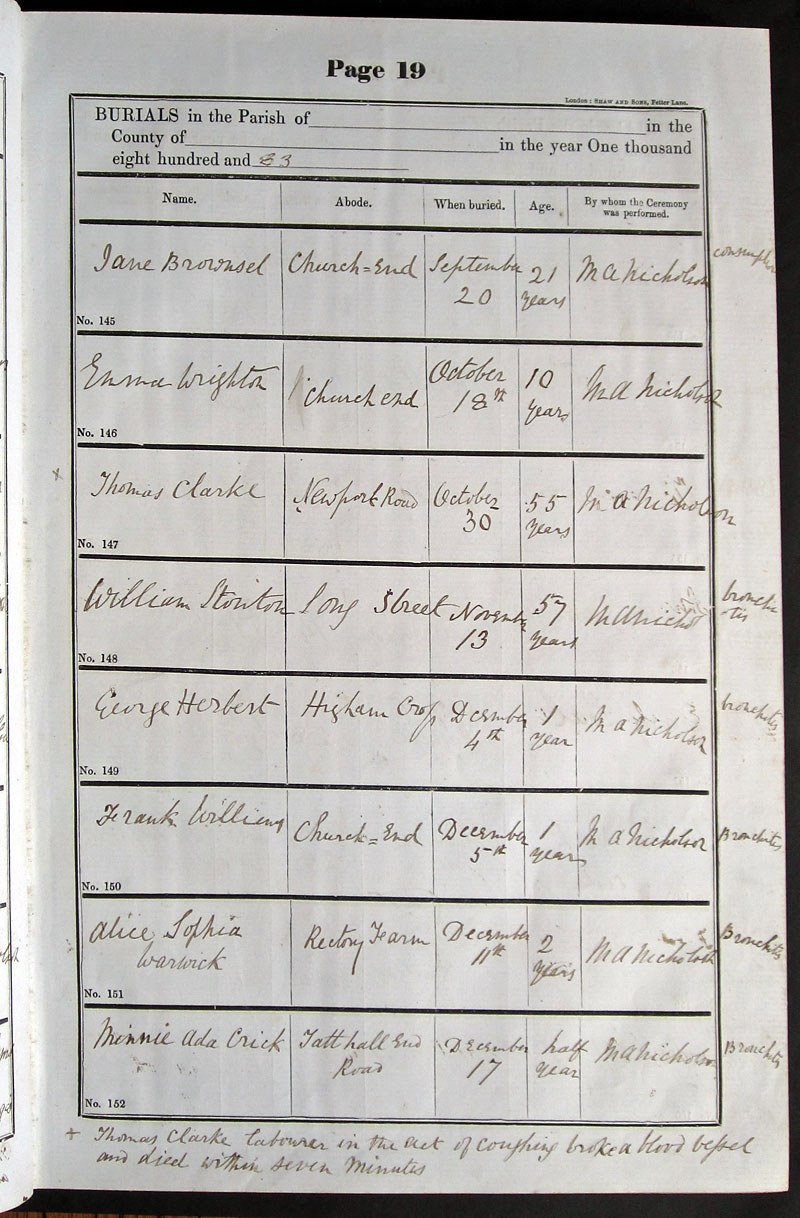 Page 19
London: SHAW AND SONS, Fetter Lane.
BURIALS in the Parish of in the
County of in the year One thousand
eight hundred and 83
Name. Abode. When buried. Age. By whom the Ceremony
was performed.
Jane Brownsel Church=End September 21 M A Nicholson consumption
20 years
No. 145
Emma Wrighton Church end October 10 M A Nicholson
18th years
No. 146
+ Thomas Clarke Newport Road October 55 M A Nicholson
30 years
No. 147
William Stonton Long Street November 57 M A Nichol bronchi
13 years -tis
No. 148
George Herbert Higham Cross December 1 M A Nicholson bronchitis
4th year
No. 149
Frank Williams Church=End December 1 M A Nicholson Bronchitis
5th years
No. 150
Alice Sophia Rectory Fearm December 2 M A Nicholson Bronchitis
Warwick 11th years
No. 151
Minnie Ada Crick Tatthall End December half M A Nicholson Bronchitis
Road 17 year
No. 152
+ Thomas Clarke labourer in the act of coughing broke a blood vessel
and died within seven minutes